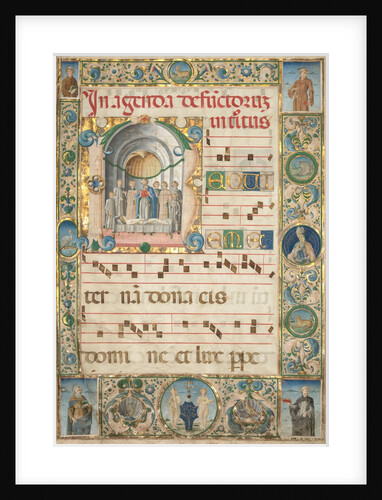 In agenda defūctoruȝ
REQUI
EM E
ter nā dona eis
domi ne et lux ppe